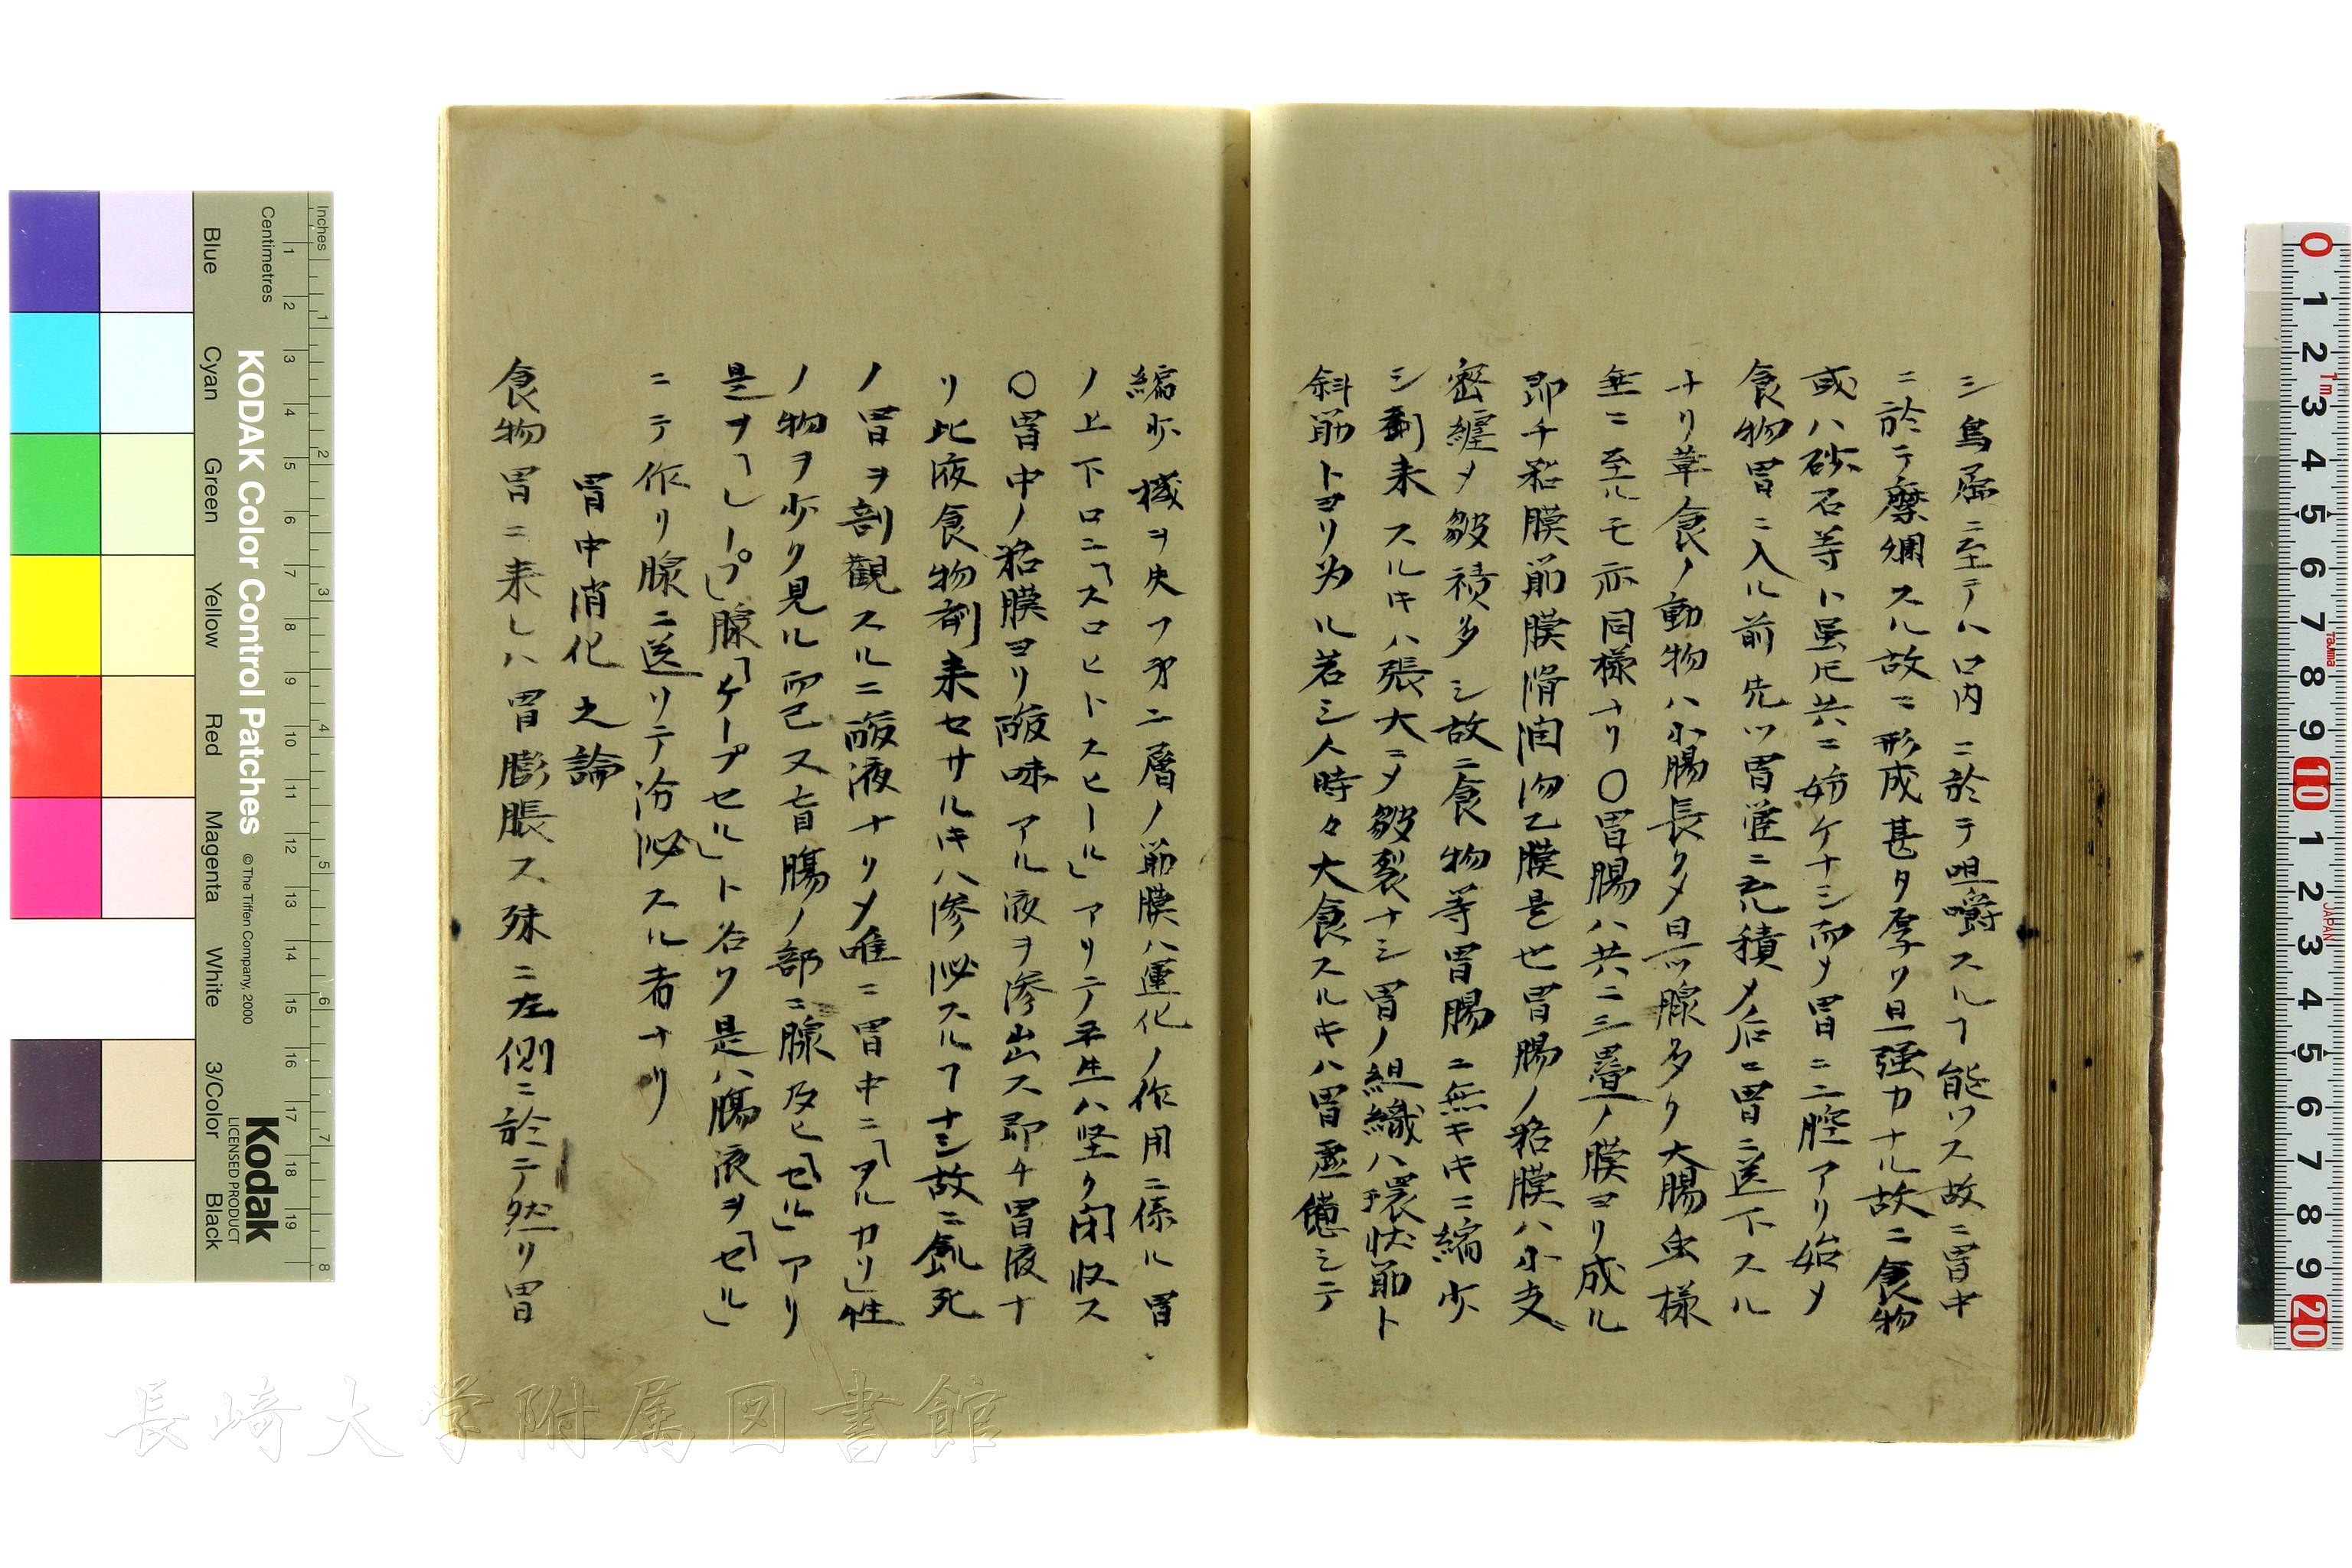 シ鳥属ニ至テハ口内ニ於テ咀嚼スルヿ能ワス故ニ胃中
ニ於テ糜爛スル故ニ形成甚タ厚ク且強力ナル故ニ食物
或ハ砂石等ト虽𪜈共ニ妨ケナシ而メ胃ニ二腔アリ始メ
食物胃ニ入ル前先ツ胃管ニ充積メ后ニ胃ニ送下スル
ナリ草食ノ動物ハ小腸長クメ且ツ腺多ク大腸虫様
垂ニ至ルモ亦同様ナリ〇胃腸ハ共ニ三疊ノ膜ヨリ成ル
即チ粘膜筋膜滑沢膜是也胃腸ノ粘膜ハ小支
密纏メ皺襞多シ故ニ食物等胃腸ニ無キキニ縮少
シ剩来スルキハ張大ニメ皺裂ナシ胃ノ組織ハ環状筋ト
斜筋トヨリ为ル若シ人時々大食スルキハ胃虚憊シテ
縮少機ヲ失フ才二層ノ筋膜ハ運化ノ作用ニ係ル胃
ノ上下口ニ「スロヒトスヒール」アリテ平生ハ坚ク闭收ス
〇胃中ノ粘膜ヨリ酸味アル液ヲ滲出ス即チ胃液ナ
リ此液食物剩来セサルキハ滲泌スルヿナシ故ニ飢死
ノ胃ヲ剖観スルニ酸液ナクメ唯ニ胃中ニ「アルカリ」性
ノ物ヲ少ク見ル而已又盲膓ノ部ニ腺及ヒ「セル」アリ
是ヲ「レープ」腺「ケープセル」ト名ク是ハ膓液ヲ「セル」
ニテ作リ腺ニ送リテ分泌スル者ナリ
胃中消化之論
食物胃ニ来レハ胃膨脹ス殊ニ左側ニ於テ然リ胃
長崎大学附属図書館
KODAK Color Control Patches
© The Tiffen Company, 2000
Kodak
LICENSED PRODUCT
Inches
Centimetres
Blue
Cyan
Green
Yellow
Red
Magenta
White
3/Color
Black
1 2 3 4 5 6 7 8
1 2 3 4 5 6 7 8 9 10 11 12 13 14 15 16 17 18 19
0 1 2 3 4 5 6 7 8 9 10 1 2 3 4 5 6 7 8 9 20
1m
Tajima
JAPAN